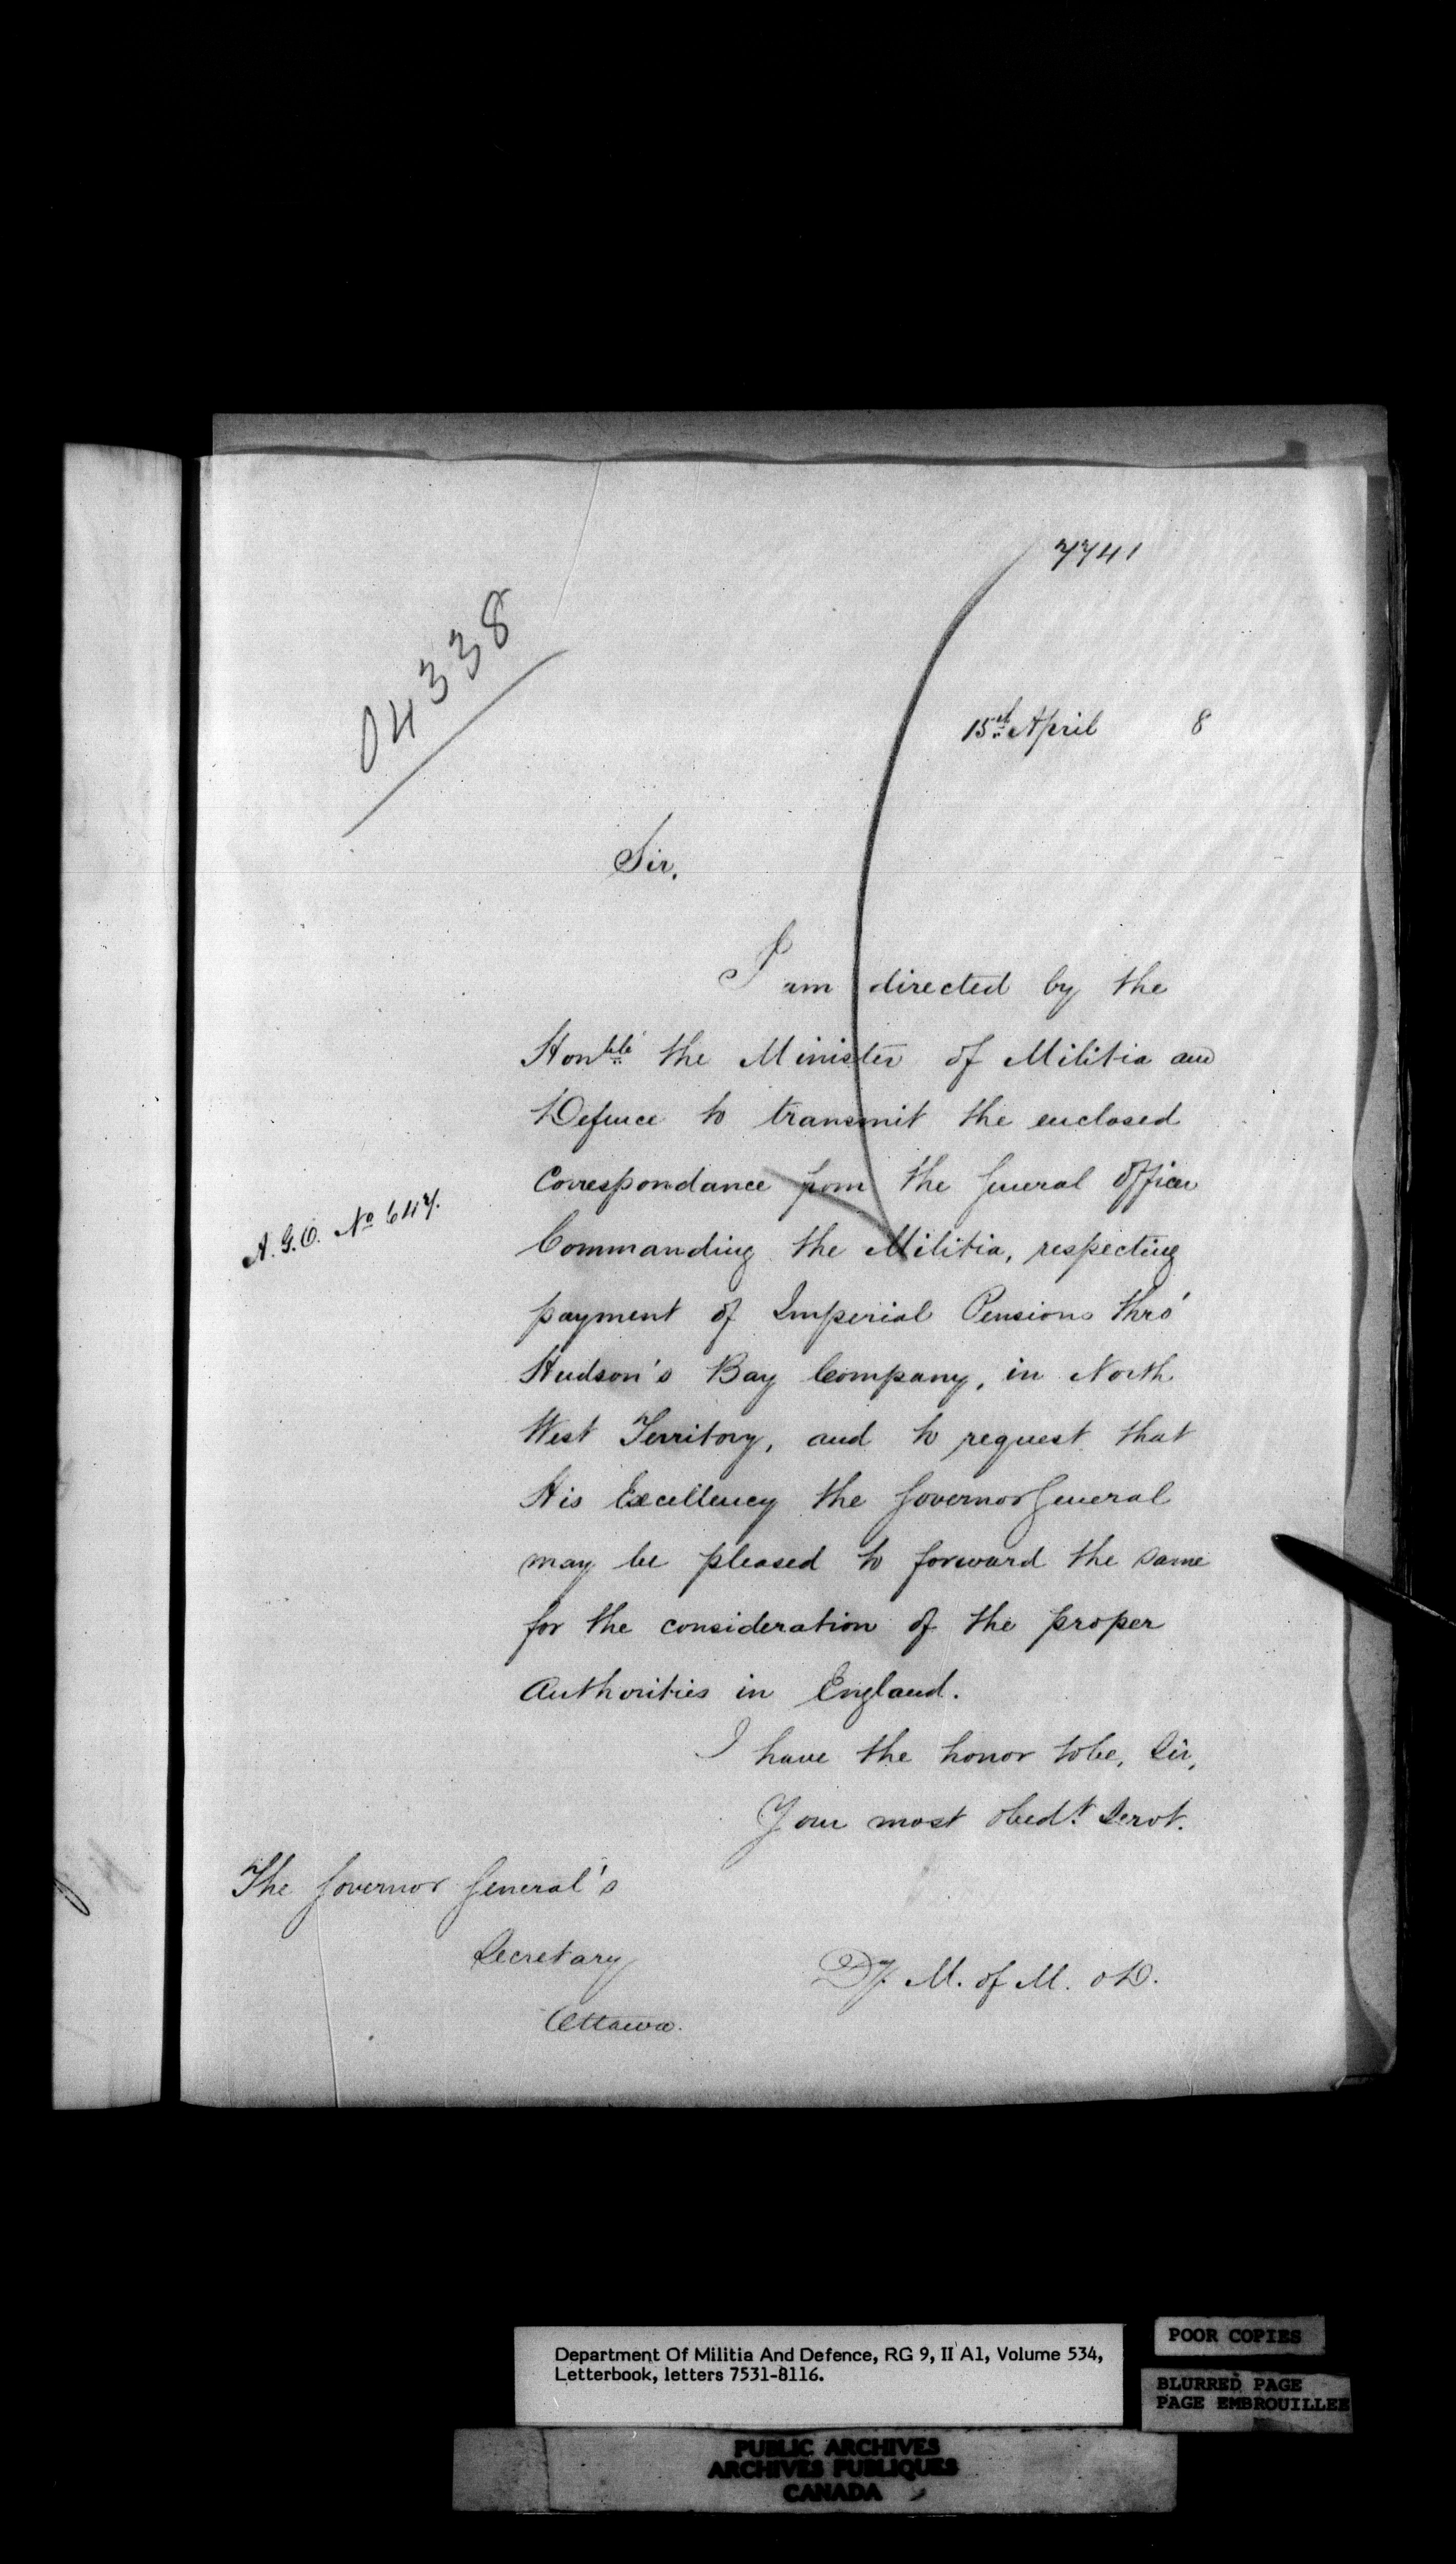 7741
04338
15th April 8
Sir,
I am directed by the
Honble the Minister of Militia and
Defence to transmit the enclosed
Correspondance from the General Officer
A. G. O. No 647.
Commanding the Militia, respecting
payment of Imperial Pensions thro'
Hudson's Bay Company, in North
West Territory, and to request that
His Excellency the Governor General
may be pleased to forward the same
for the consideration of the proper
Authorities in England.
I have the honor to be, Sir,
Your most obedt. Servt.
The Governor General's
Secretary
Ottawa.
Dy. M. of M. & D.
Department Of Militia And Defence, RG 9, II A1, Volume 534,
Letterbook, letters 7531-8116.
POOR COPIES
BLURRED PAGE
PAGE EMBROUILLEE
PUBLIC ARCHIVES
ARCHIVES PUBLIQUES
CANADA